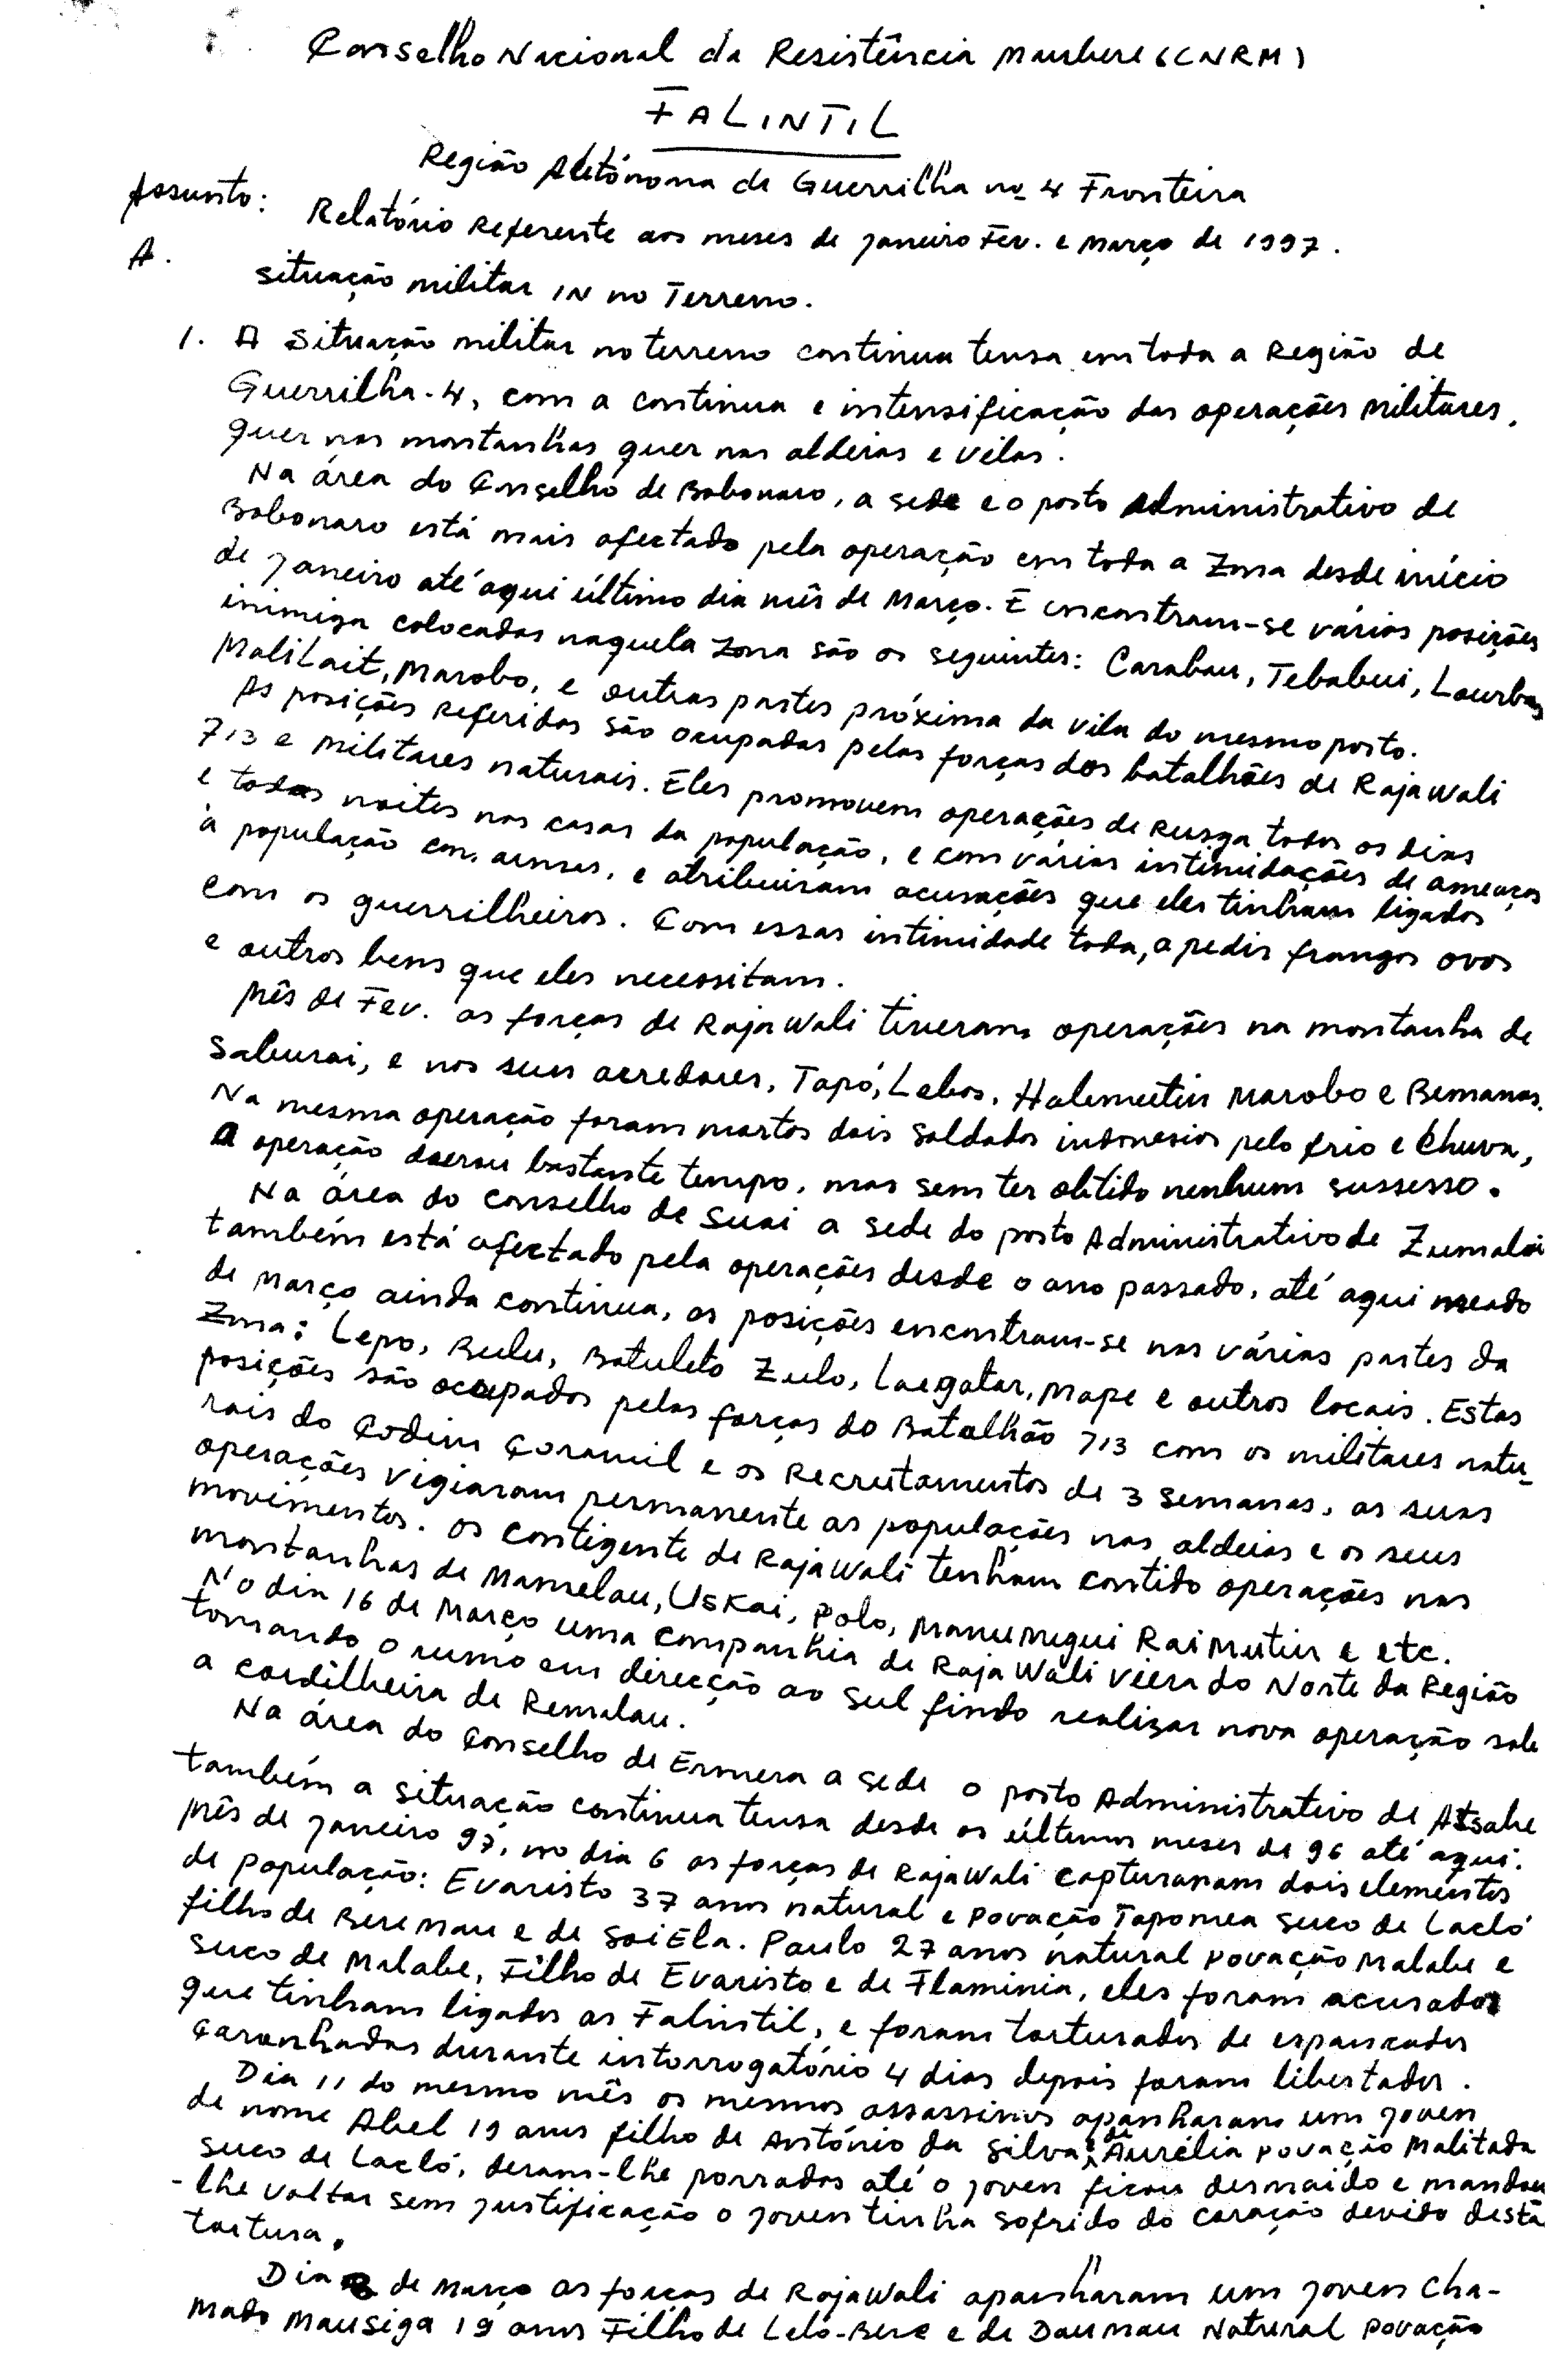 Conselho Nacional da Resistência Maubere (CNRM)
FALINTIL
Região Autónoma de Guerrilha no 4 Fronteira
Assunto: Relatório Referente aos meses de janeiro Fev. e Março de 1997.
A. situação militar IN no Terreno.
1. A situação militar no terreno continua tensa em toda a Região de
Guerrilha-4, com a continua e intensificação das operações militares,
quer nas montanhas quer nas aldeias e vilas.
Na área do Conselho de Bobonaro, a sede e o posto administrativo de
Bobonaro está mais afectado pela operação em toda a Zona desde início
de janeiro até aqui último dia mês de Março. E encontram-se várias posições
inimiga colocadas naquela zona são os seguintes: Carabau, Tebabui, Lourba
MaliLait, Marobo, e outras partes próxima da vila do mesmo posto.
As posições referidas são ocupadas pelas forças dos batalhões de Rajawali
713 e militares naturais. Eles promovem operações de rusga todos os dias
e todas noites nas casas da população, e com várias intimidações de ameaças
à população com armas, e atribuiram acusações que eles tinham ligados
com os guerrilheiros. Com essas intimidade toda, a pedir frangos ovos
e outros bens que eles necessitam.
Mês de Fev. as forças de Rajawali tiveram operações na montanha de
Saburai, e nos seus arredores, Tapó, Lebos, Halemutin Marobo e Bemanas.
Na mesma operação foram mortos dois soldados indonesios pelo frio e chuva,
A operação doerou bastante tempo, mas sem ter obtido nenhum sussesso.
Na área do conselho de Suai a sede do posto Administrativo de Zumalai
também está afectado pela operações desde o ano passado, até aqui meado
de Março ainda continua, as posições encontram-se nas várias partes da
Zona: Lepo, Bulu, Batuleto Zulo, Laegatar, Mape e outros locais. Estas
posições são ocupados pelas forças do Batalhão 713 com os militares natu-
rais do Codim Coramil e os Recrutamentos de 3 semanas, as suas
operações vigiaram permanente as populações nas aldeias e os seus
movimentos. Os contigente de Rajawali tenham contido operações nas
montanhas de Mamelau, Uskai, Polo, Manumegui RaiMutin e etc.
No dia 16 de Março uma companhia de Rajawali viera do Norte da Região
tomando o rumo em direcção ao sul findo realizar nova operação sobe
a cordilheira de Remelau.
Na área do Conselho de Ermera a sede o posto Administrativo de Atsabe
também a situação continua tensa desde os últimos meses de 96 até aqui.
Mês de janeiro 97, no dia 6 as forças de Rajawali capturaram dois elementos
de população: Evaristo 37 anos natural e povação Tapomea suco de Lacló
filho de Beremau e de SoiEla. Paulo 27 anos natural povação Malabe e
suco de Malabe, Filho de Evaristo e de Flaminia, eles foram acusados
que tinham ligados as Falintil, e foram torturados de espancados
caronhadas durante intorrogatório 4 dias depois foram libertados.
Dia 11 do mesmo mês os mesmos assassinos apanharam um joven
de nome Abel 19 anos filho de António da Silva e de Aurélia povação Malitada
suco de Lacló, deram-lhe porradas até o joven ficou desmaido e mandou
-lhe voltar sem justificação o joven tinha sofrido do coração devido desta
tortura.
Dia de Março as forças de Rajawali apanharam um joven cha-
mado Mausiga 19 anos Filho de Leló-Bere e de Daumau Natural povação